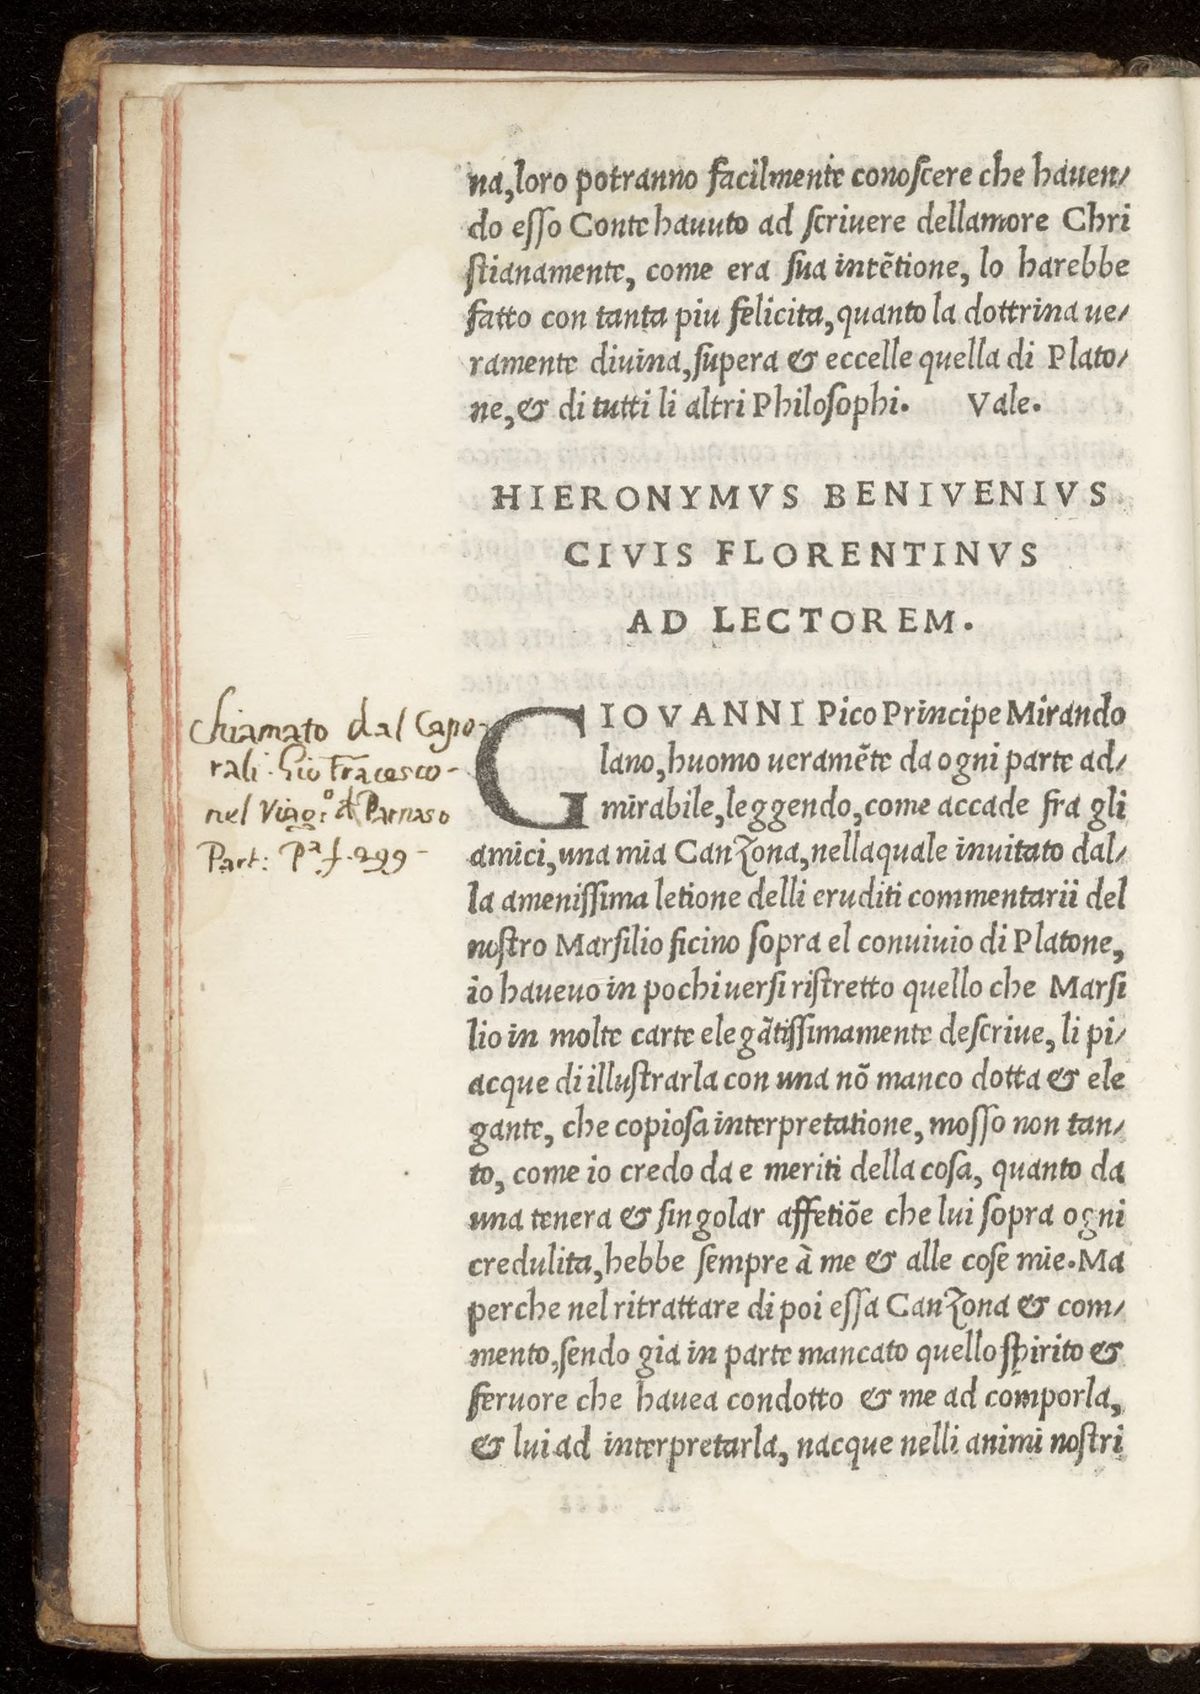 na, loro potranno facilmente conoſcere che hauen/
do eſſo Conte hauuto ad ſcriuere dellamore Chri
ſtianamente, come era ſua intẽtione, lo harebbe
fatto con tanta piu felicita, quanto la dottrina ue/
ramente diuina, ſupera & eccelle quella di Plato/
ne, & di tutti li altri Philoſophi. Vale.
HIERONYMVS BENIVENIVS
CIVIS FLORENTINVS
AD LECTOREM.
GIOVANNI Pico Principe Mirando
lano, huomo ueramẽte da ogni parte ad/
mirabile, leggendo, come accade fra gli
amici, una mia Canzona, nellaquale inuitato dal/
la ameniſſima letione delli eruditi commentarii del
noſtro Marſilio ficino ſopra el conuiuio di Platone,
io haueuo in pochi uerſi riſtretto quello che Marſi
lio in molte carte elegãtiſſimamente deſcriue, li pi/
acque di illuſtrarla con una nõ manco dotta & ele
gante, che copioſa interpretatione, moſſo non tan/
to, come io credo da e meriti della coſa, quanto da
una tenera & ſingolar affetiõe che lui ſopra ogni
credulita, hebbe ſempre à me & alle coſe mie. Ma
perche nel ritrattare di poi eſſa Canzona & com/
mento, ſendo gia in parte mancato quello ſpirito &
feruore che hauea condotto & me ad comporla,
& lui ad interpretarla, nacque nelli animi noſtri
Chiamato dal Capo-
rali. Gio Fracesco-
nel Viag:º d Parnaso
Part: Pª f. 299-